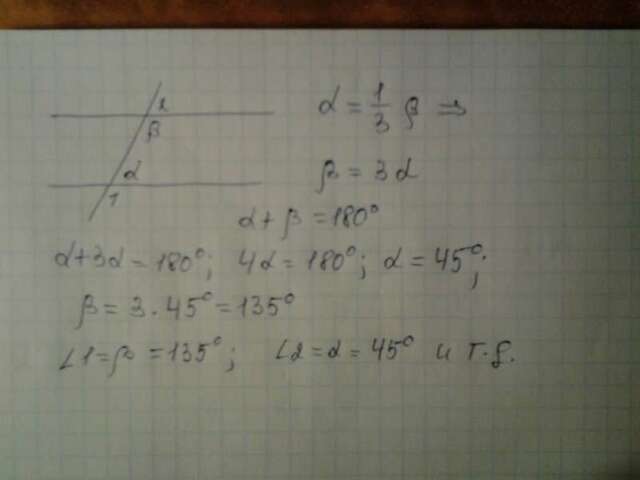 2
β
α
1
α = 1/3 β ⇒
β = 3α
α + β = 180°
α + 3α = 180°; 4α = 180°; α = 45°;
β = 3 · 45° = 135°
∠1 = β = 135°; ∠2 = α = 45° и т.д.